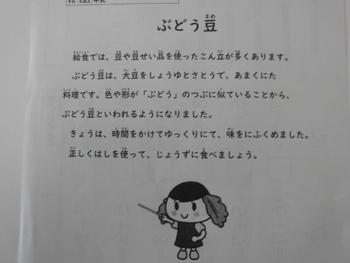 ぶどう豆
給食では、豆や豆せい品を使ったこん立が多くあります。
ぶどう豆は、大豆をしょうゆとさとうで、あまくにた
料理です。色や形が「ぶどう」のつぶに似ていることから、
ぶどう豆といわれるようになりました。
きょうは、時間をかけてゆっくりにて、味をにふくめました。
正しくはしを使って、じょうずに食べましょう。